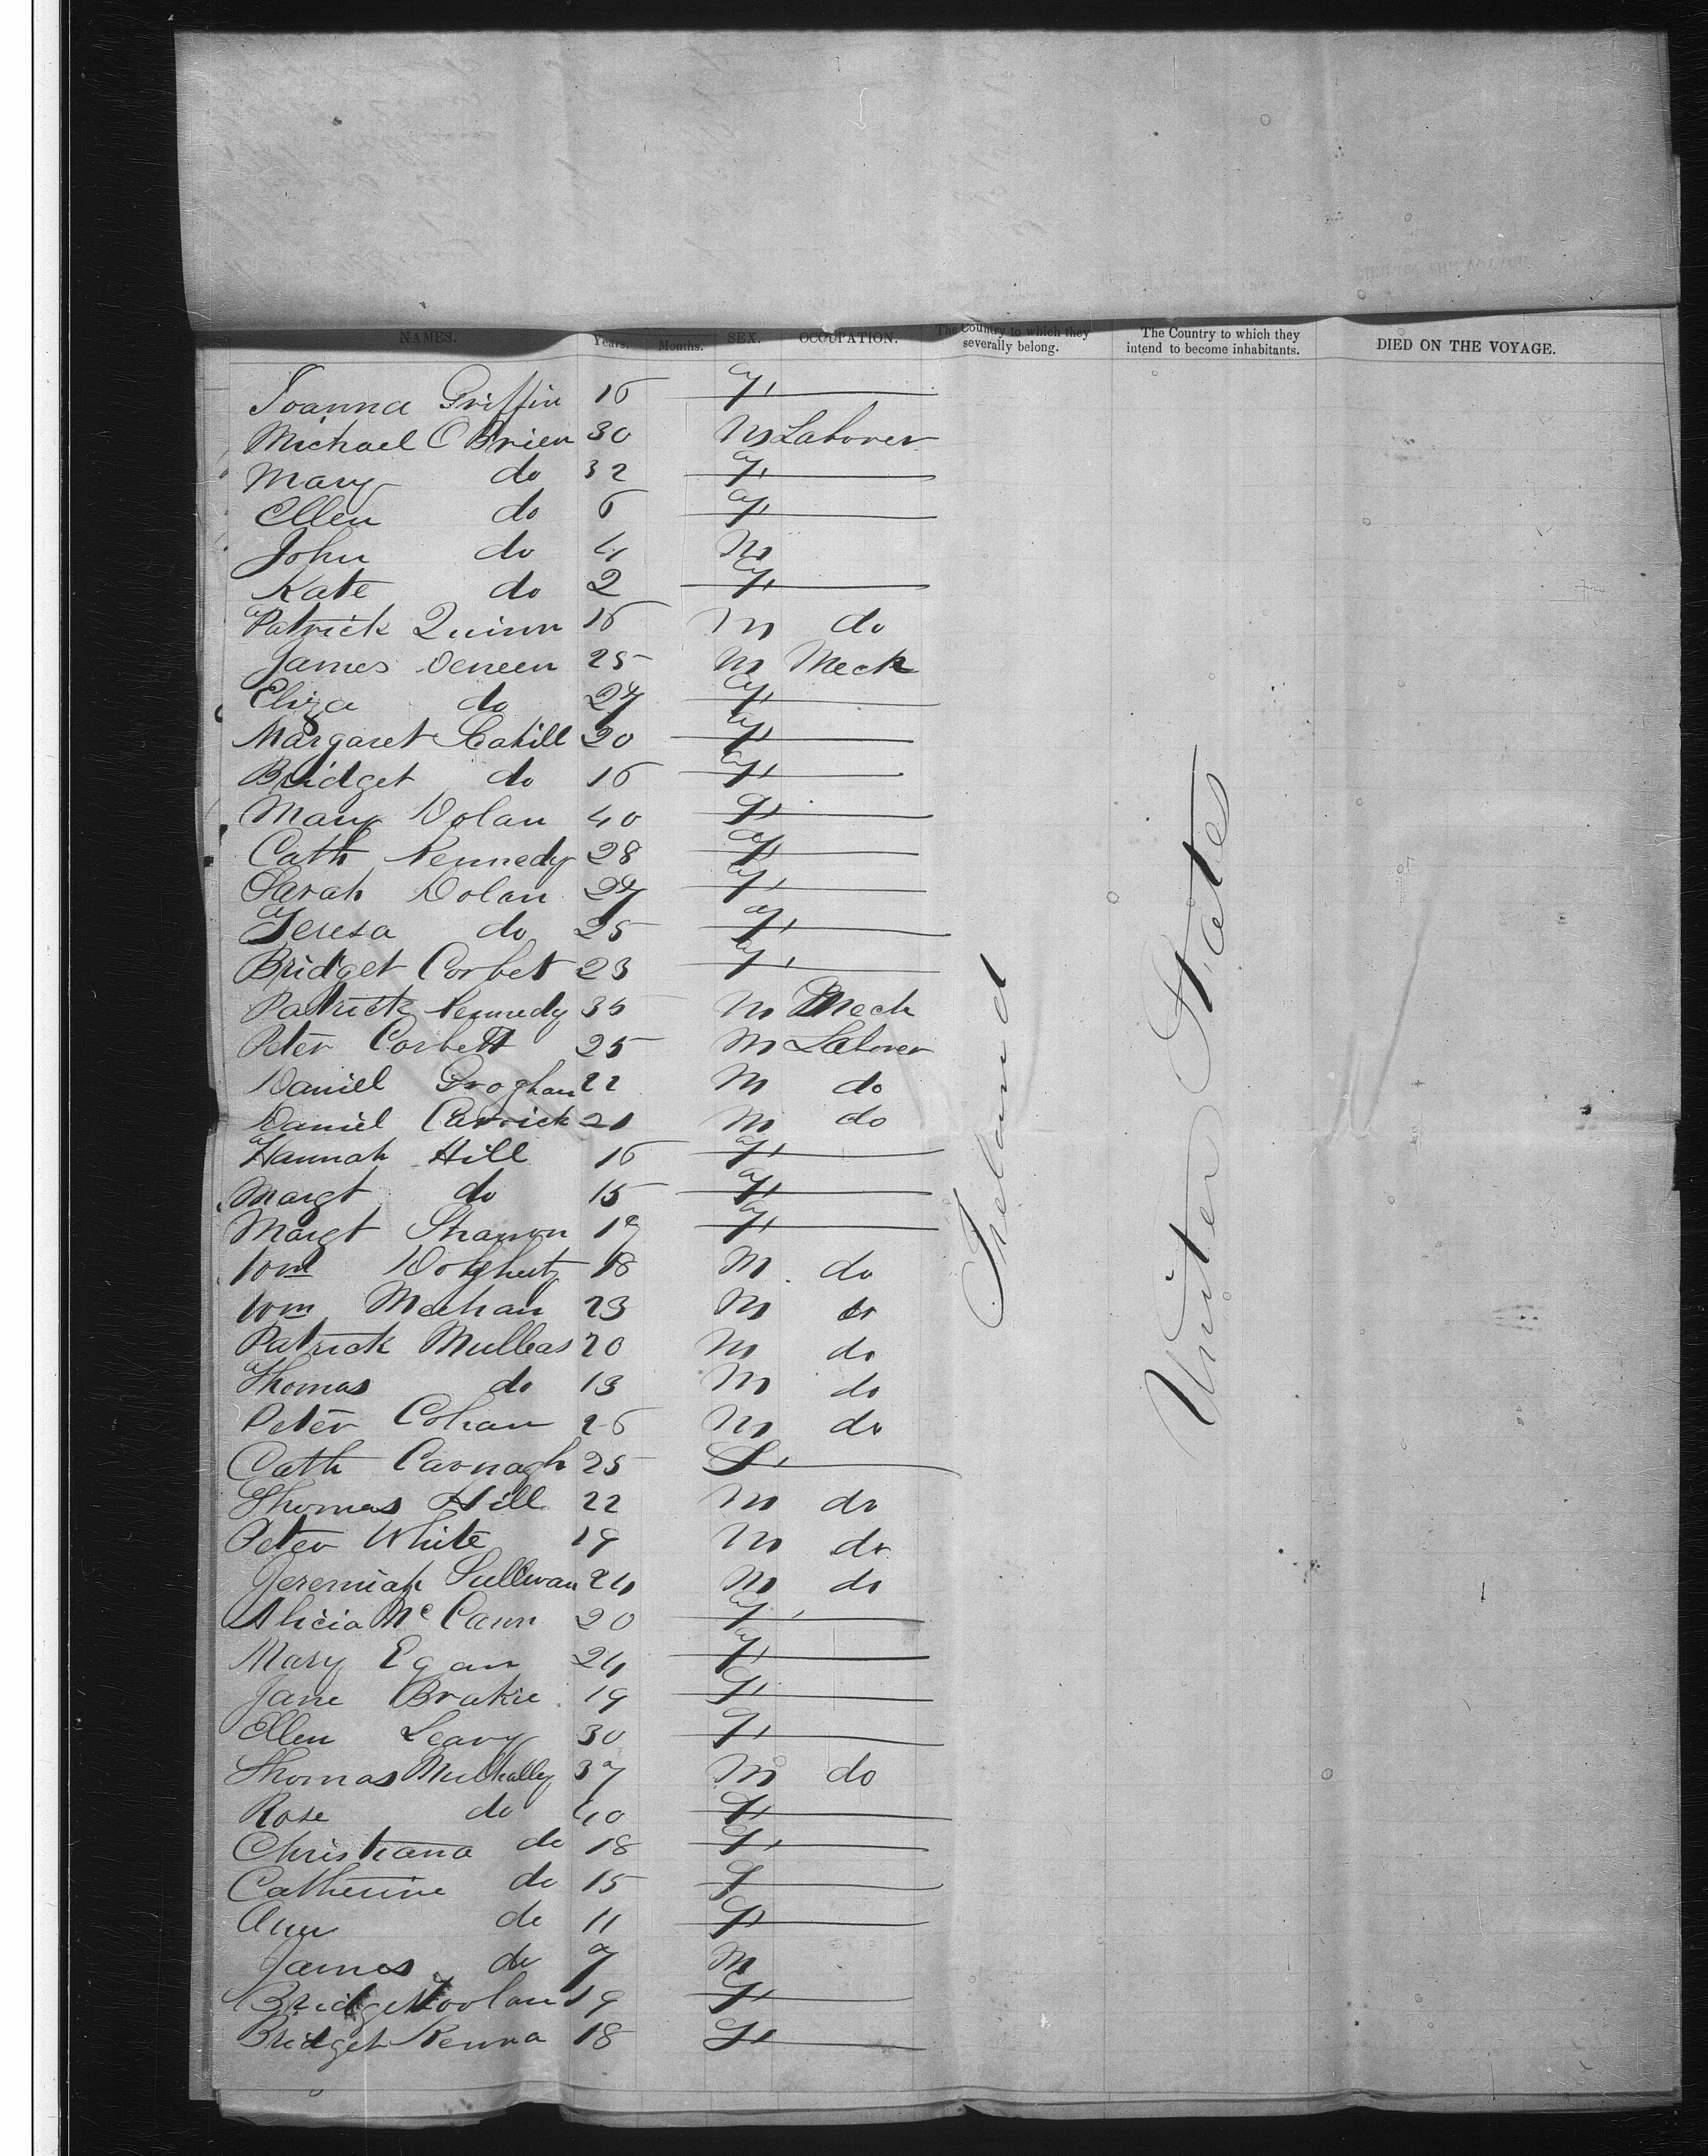 NAMES. Years. Months. SEX. OCCUPATION. The Country to which they severally belong. The Country to which they intend to become inhabitants. DIED ON THE VOYAGE.
Joanna Griffin 16 F
Michael OBrien 30 M Laborer
Mary do 32 F
Ellen do 6 F
John do 4 M
Kate do 2 F
Patrick Quinn 16 M do
James Deneen 25 M Mech
Eliza do 27 F
Margaret Cahill 20 F
Bridget do 16 F
Mary Dolan 40 F
Cath Kennedy 28 F
Sarah Dolan 27 F
Teresa do 25 F
Bridget Corbet 23 F
Patrick Kennedy 35 M Mech
Peter Corbett 25 M Laborer
Daniel Groghan 22 M do
Daniel Carrick 21 M do
Hannah Hill 16 F
Margt do 15 F
Margt Shannon 19 F
Wm 18 M do
Wm Meehan 23 M do
Patrick 20 M do
Thomas do 13 M do
Peter Cohan 26 M do
Cath Cavnagh 25 F
Thomas Hill 22 M do
Peter White 19 M do
Jeremiah Sullivan 24 M do
Alicia McCann 20 F
Mary Egan 24 F
Jane 19 F
Ellen Leavy 30 F
Thomas Mulhally 37 M do
Rose do 40 F
Christiana do 18 F
Catherine do 15 F
Ann do 11 F
James do 7 M
Bridget Toolan 19 F
Bridget Kenna 18 F
Ireland
United States